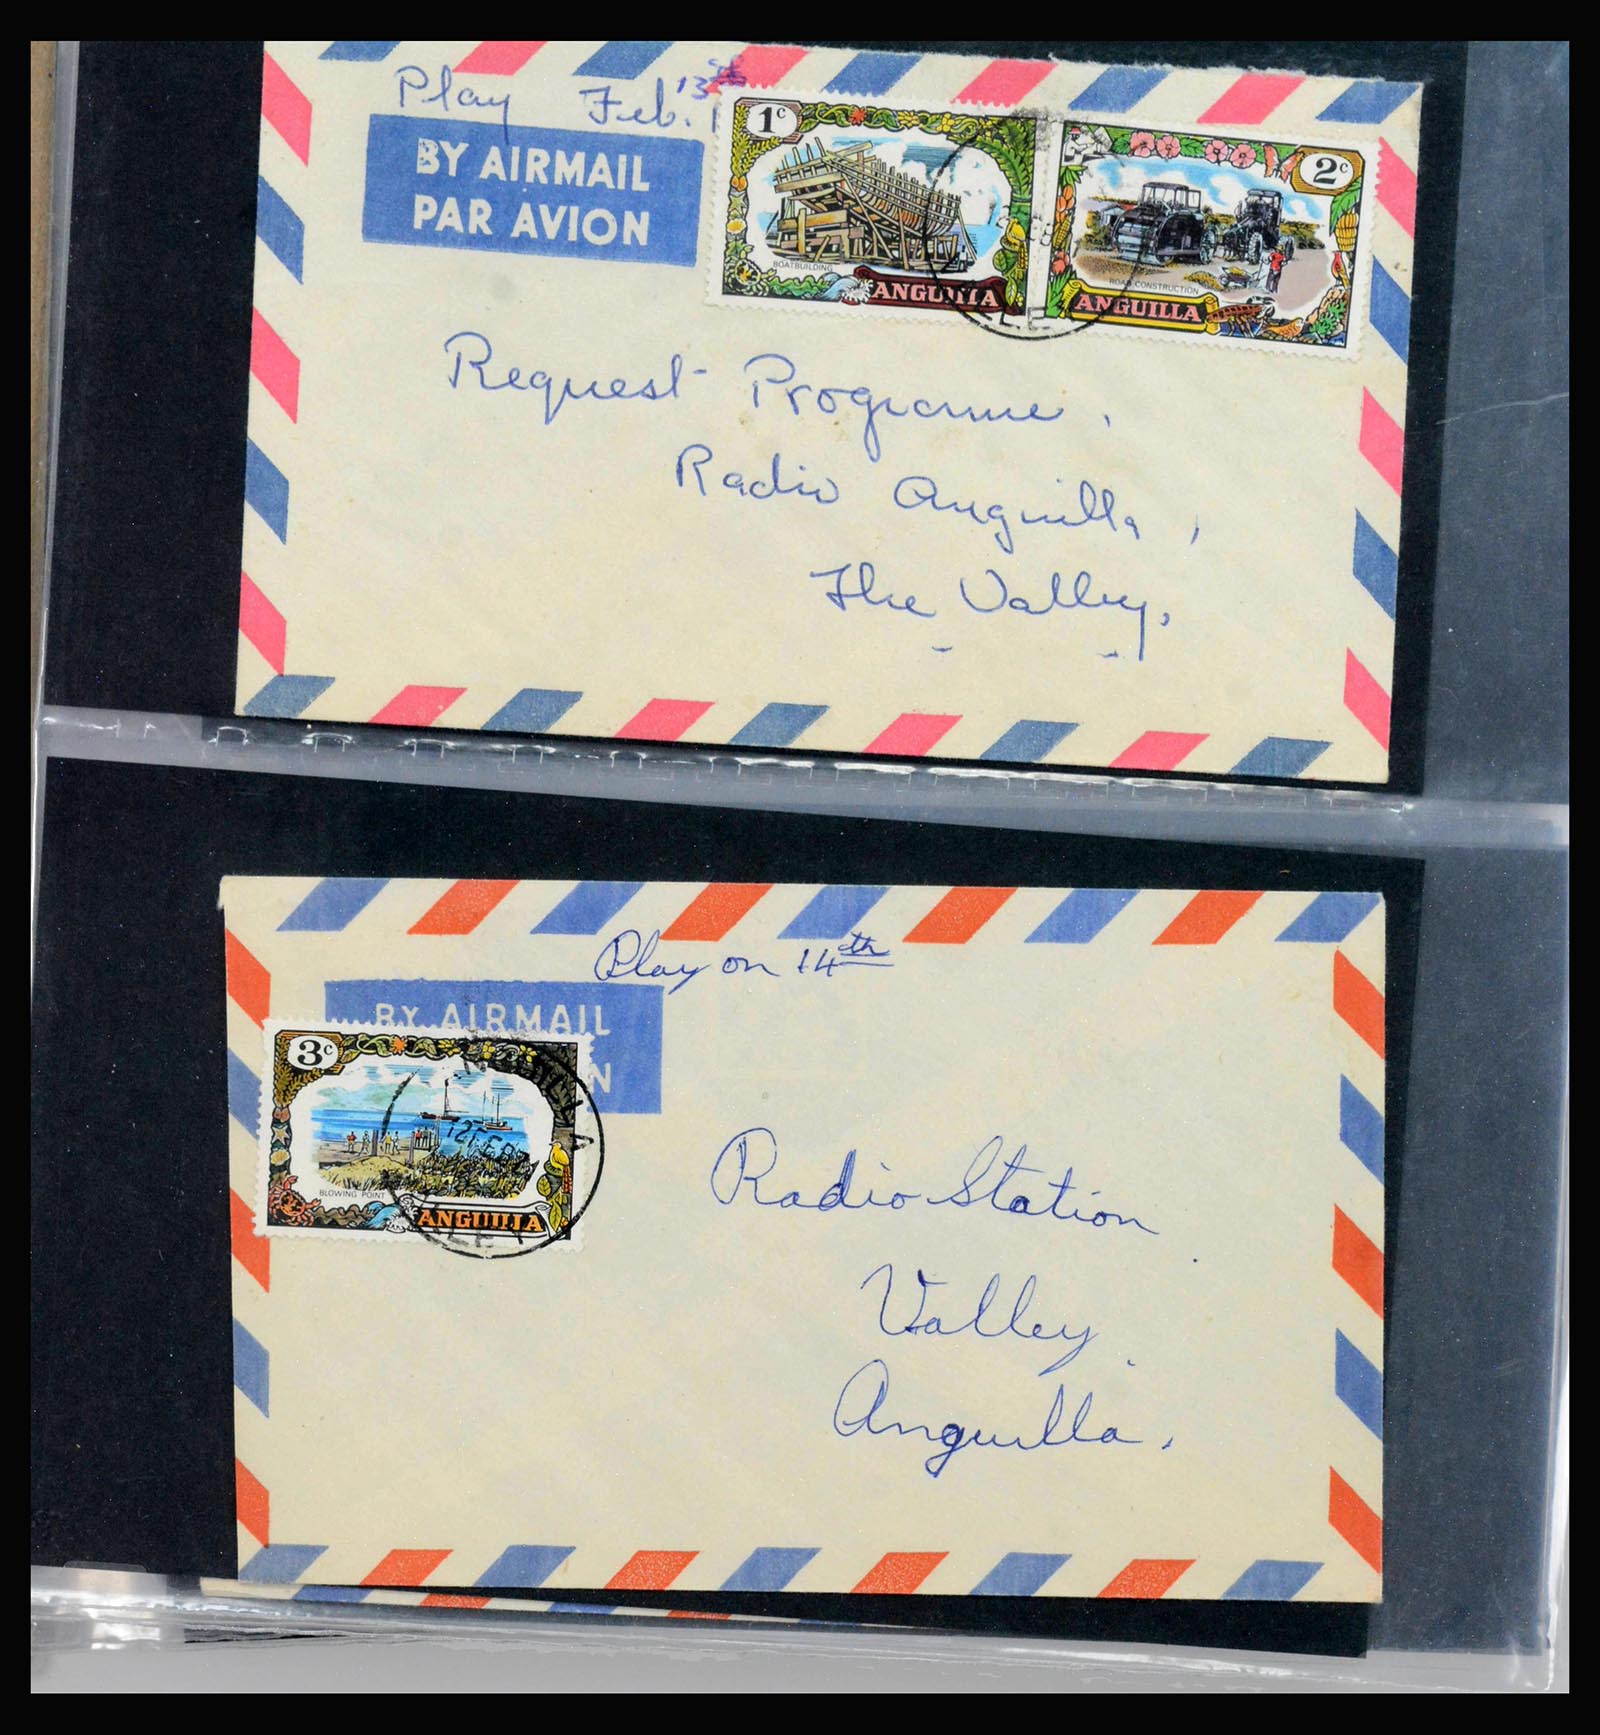 Play Feb. 13th
BY AIRMAIL
PAR AVION
1c
2c
BOATBUILDING
ROAD CONSTRUCTION
ANGUILLA
ANGUILLA
Request Programme,
Radio Anguilla,
The Valley,
Play on 14th
BY AIRMAIL
N
3c
ANGUILLA
12 FEB
BLOWING POINT
ANGUILLA
Radio Station
Valley
Anguilla.